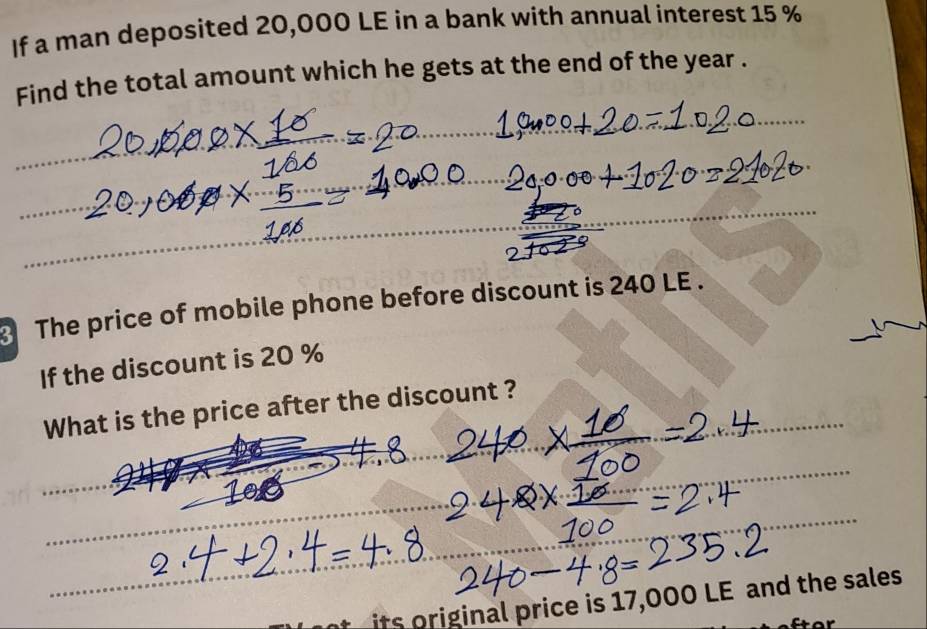 If a man deposited 20,000 LE in a bank with annual interest 15 %
Find the total amount which he gets at the end of the year .
20,000 × 10/100 = 20 1,000 + 20 = 1020
20,000 × 5/100 = 1,000 20,000 + 1020 = 21020
21020
3 The price of mobile phone before discount is 240 LE .
If the discount is 20 %
What is the price after the discount ?
4.8 240 × 10/100 = 2.4
240 × 10/100 = 2.4
2.4 + 2.4 = 4.8
240 - 4.8 = 235.2
its original price is 17,000 LE and the sales
after
Maths